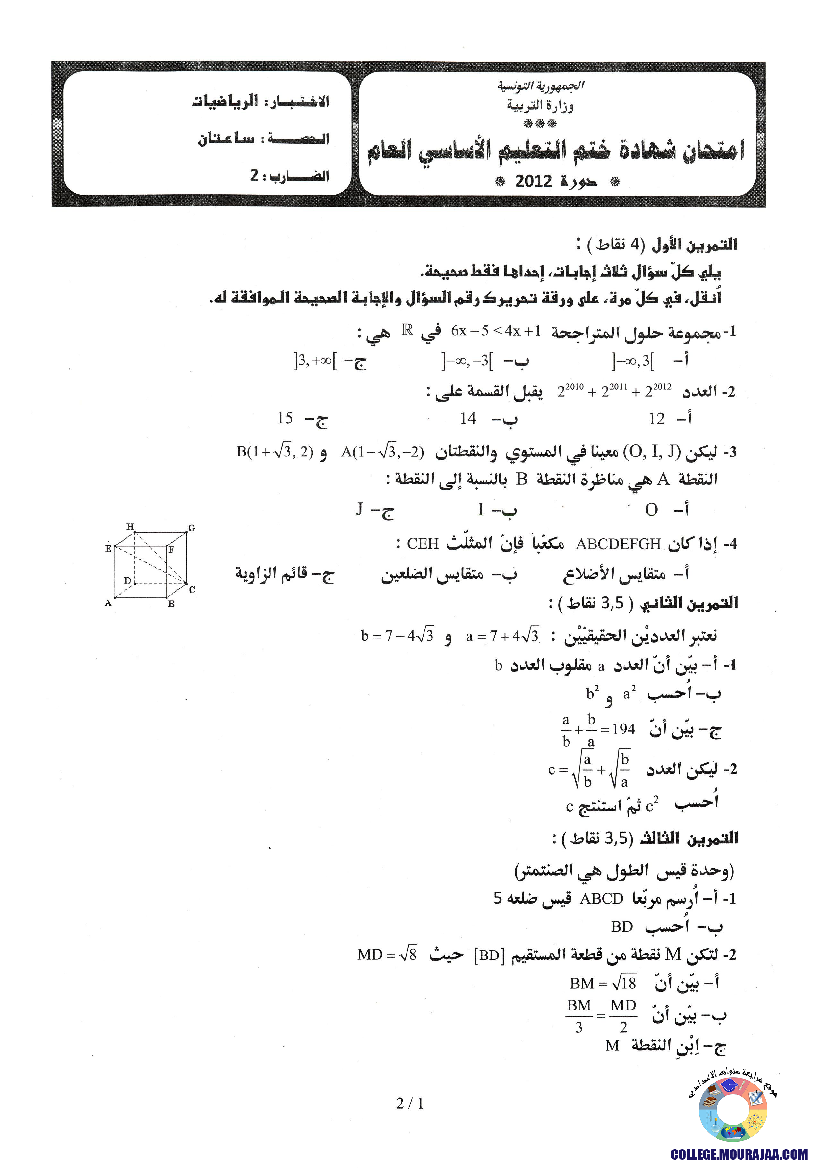 الجمهورية التونسية
وزارة التربية
***
امتحان شهادة ختم التعليم الأساسي العام
* دورة 2012 *
الاختبار: الرياضيات
الحصة: ساعتان
الضارب: 2
التمرين الأول (4 نقاط) :
يلي كلّ سؤال ثلاث إجابات، إحداها فقط صحيحة.
أنقل، في كلّ مرة، على ورقة تحريرك رقم السؤال والإجابة الصحيحة الموافقة له.
1- مجموعة حلول المتراجحة 6x−5<4x+1 في ℝ هي :
أ- ]−∞,3[ ب- ]−∞,−3[ ج- ]3,+∞[
2- العدد 2²⁰¹⁰ + 2²⁰¹¹ + 2²⁰¹² يقبل القسمة على :
أ- 12 ب- 14 ج- 15
3- ليكن (O, I, J) معينا في المستوي والنقطتان A(1−√3,−2) و B(1+√3, 2)
النقطة A هي مناظرة النقطة B بالنسبة إلى النقطة :
أ- O ب- I ج- J
4- إذا كان ABCDEFGH مكعّبا فإنّ المثلّث CEH :
أ- متقايس الأضلاع ب- متقايس الضلعين ج- قائم الزاوية
H G
E F
D C
A B
التمرين الثاني ( 3,5 نقاط) :
نعتبر العدديْن الحقيقيّيْن : a = 7+4√3 و b = 7−4√3
1- أ- بيّن أنّ العدد a مقلوب العدد b
ب- أُحسب a² و b²
ج- بيّن أنّ a/b + b/a = 194
2- ليكن العدد c = √(a/b) + √(b/a)
أُحسب c² ثمّ استنتج c
التمرين الثالث (3,5 نقاط) :
(وحدة قيس الطول هي الصنتمتر)
1- أ- أُرسم مربّعا ABCD قيس ضلعه 5
ب- أُحسب BD
2- لتكن M نقطة من قطعة المستقيم [BD] حيث MD = √8
أ- بيّن أنّ BM = √18
ب- بيّن أنّ BM/3 = MD/2
ج- اِبْنِ النقطة M
2 / 1
COLLEGE.MOURAJAA.COM